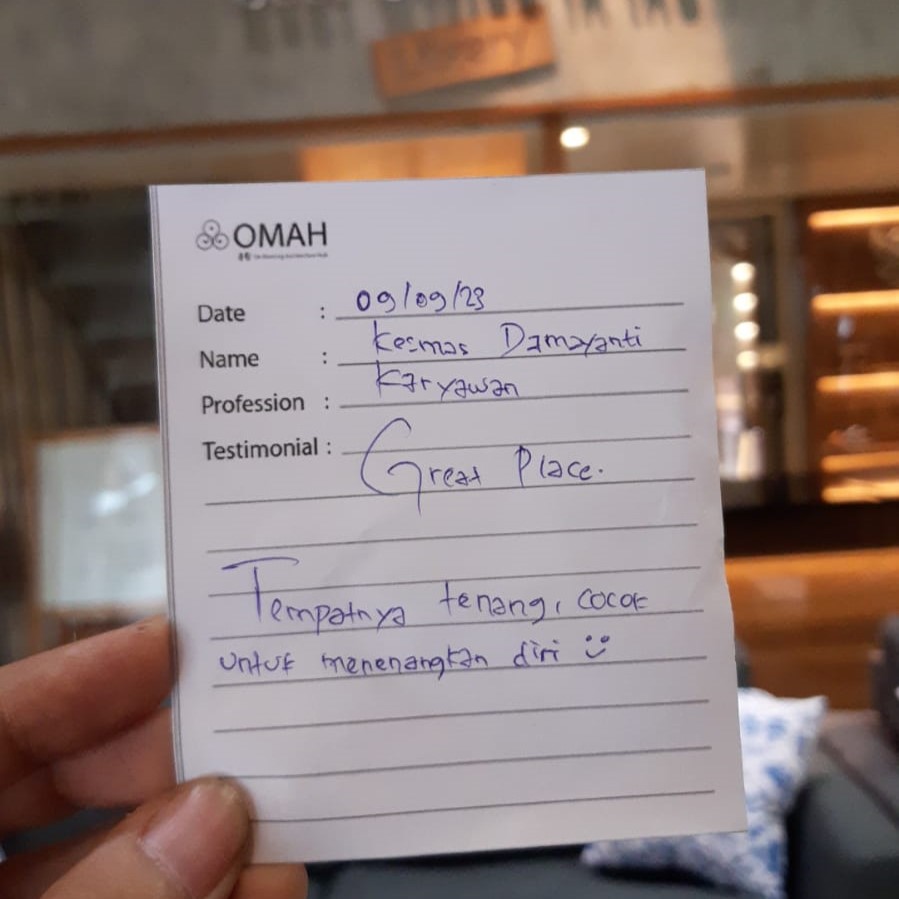 Library
OMAH
Date : 09/09/23
Name : Kesmas Damayanti
Profession : Karyawan
Testimonial : Great Place.
Tempatnya tenang, cocok
untuk menenangkan diri :)